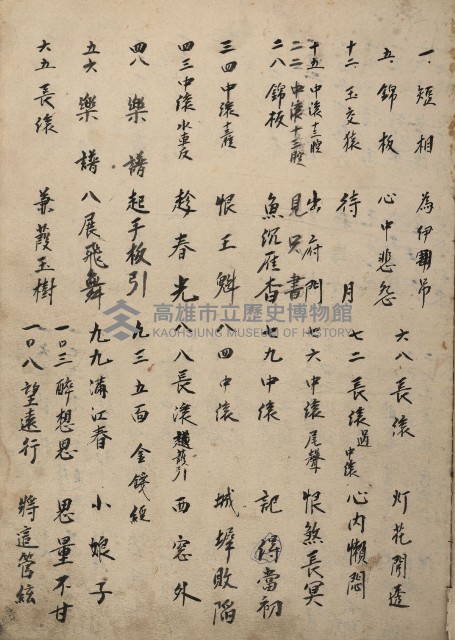 一 短相 為伊割吊
五 錦板 心中悲怨
十二 玉交猿 待月
十五 中滾十三腔 出府門
二二 中滾十三腔 見只書
二八 錦板 魚沉雁杳
三四 中滾 恨王魁
四三 中滾水車反 趁春光
四八 樂譜 起手板引
五六 樂譜 八展飛舞
六五 長滾 蒹葭玉樹
六八 長滾 灯花開透
七二 長滾過中滾 心內懶悶
七六 中滾尾聲 恨煞長冥
七九 中滾 記得當初
八四 中滾 城墀敗陷
八八 長滾 引 西窓外
九三 五面 金錢經
九九 滿江春 小娘子
一〇三 醉想思 思量不甘
一〇八 望遠行 將這管絃
高雄市立歷史博物館
KAOHSIUNG MUSEUM OF HISTORY